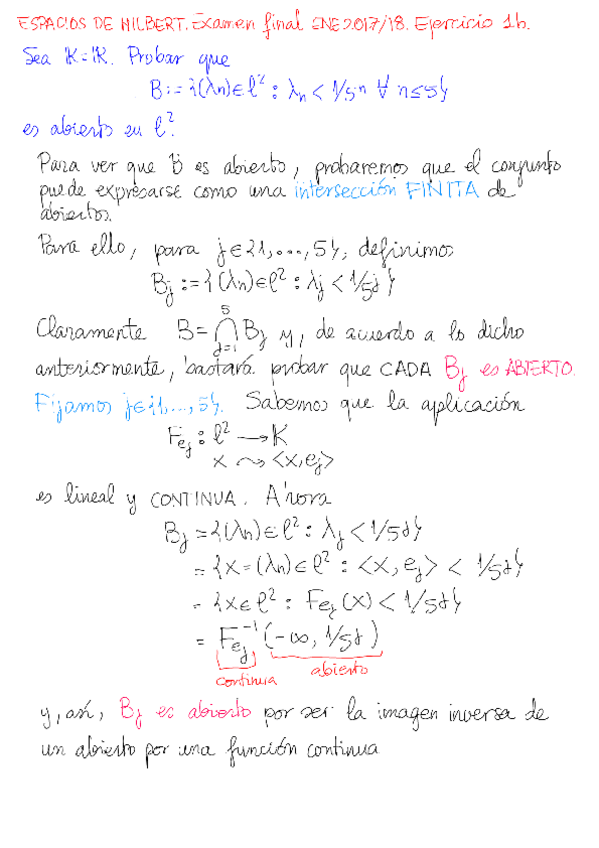 ESPACIOS DE HILBERT. Examen final ENE 2017/18. Ejercicio 1b.
Sea K=R. Probar que
B:={(λn)∈ℓ²: λn < 1/5ⁿ ∀ n≤5}
es abierto en ℓ².
Para ver que B es abierto, probaremos que el conjunto
puede expresarse como una intersección FINITA de
abiertos.
Para ello, para j∈{1,...,5}, definimos
Bj:={(λn)∈ℓ²: λj < 1/5ʲ}
Claramente B=⋂⁵ⱼ₌₁ Bj y, de acuerdo a lo dicho
anteriormente, bastará probar que CADA Bj es ABIERTO.
Fijamos j∈{1,...,5}. Sabemos que la aplicación
Fej: ℓ² → K
x ⇝ <x,ej>
es lineal y CONTINUA. Ahora
Bj={(λn)∈ℓ²: λj < 1/5ʲ}
={x=(λn)∈ℓ²: <x,ej> < 1/5ʲ}
={x∈ℓ²: Fej(x) < 1/5ʲ}
= Fej⁻¹(-∞, 1/5ʲ)
continua abierto
y, así, Bj es abierto por ser la imagen inversa de
un abierto por una función continua